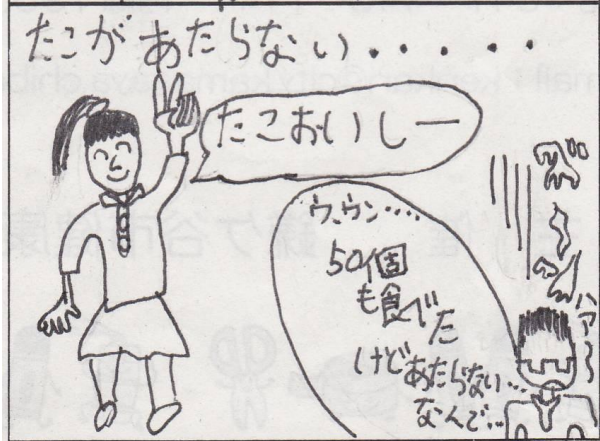 たこがあたらない・・・・・
たこおいしー
ウ、ウン・・・・
50個
も食べた
けどあたらない…
なんで…
ハァ～